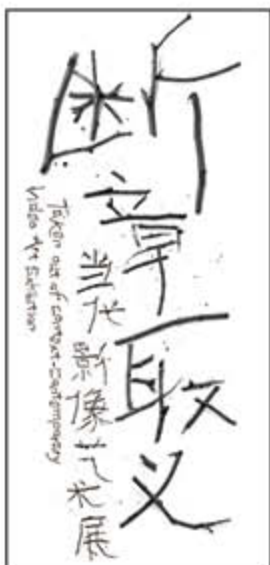 断章取义
当代影像艺术展
Taken out of context-Contemporary
Video Art Exhibition